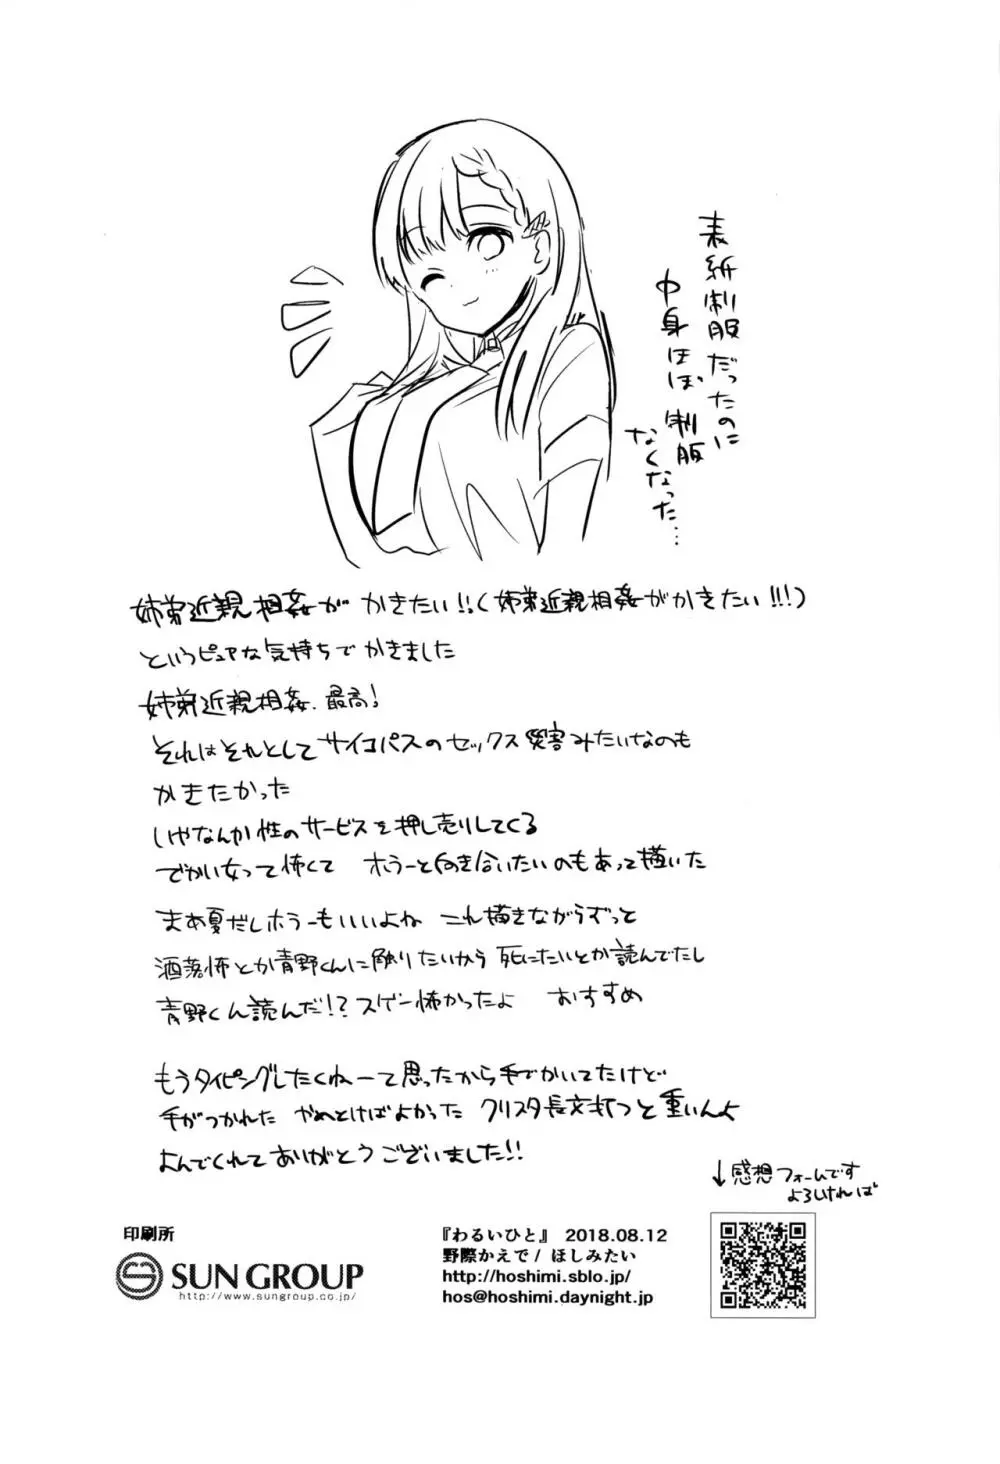 表紙制服だったのに
中身ほぼ制服
なくなった…
姉弟近親相姦が かきたい!!(姉弟近親相姦がかきたい!!!)
というピュアな気持ちで かきました
姉弟近親相姦、最高!
それはそれとしてサイコパスのセックス災害みたいなのも
かきたかった
いやなんか性のサービスを押し売りしてくる
でかい女って怖くて ホラーと向き合いたいのもあって描いた
まあ夏だしホラーもいいよね これ描きながらずっと
洒落怖とか青野くんに触りたいから死にたいとか読んでたし
青野くん読んだ!?スゲー怖かったよ おすすめ
もうタイピングしたくねーて思ったから手でかいてたけど
手がつかれた やめとけばよかった クリスタ長文打つと重いんよ
よんでくれてありがとうございました!!
↓感想フォームです
よろしければ
印刷所
SUN GROUP
http://www.sungroup.co.jp/
『わるいひと』 2018.08.12
野際かえで/ ほしみたい
http://hoshimi.sblo.jp/
hos@hoshimi.daynight.jp